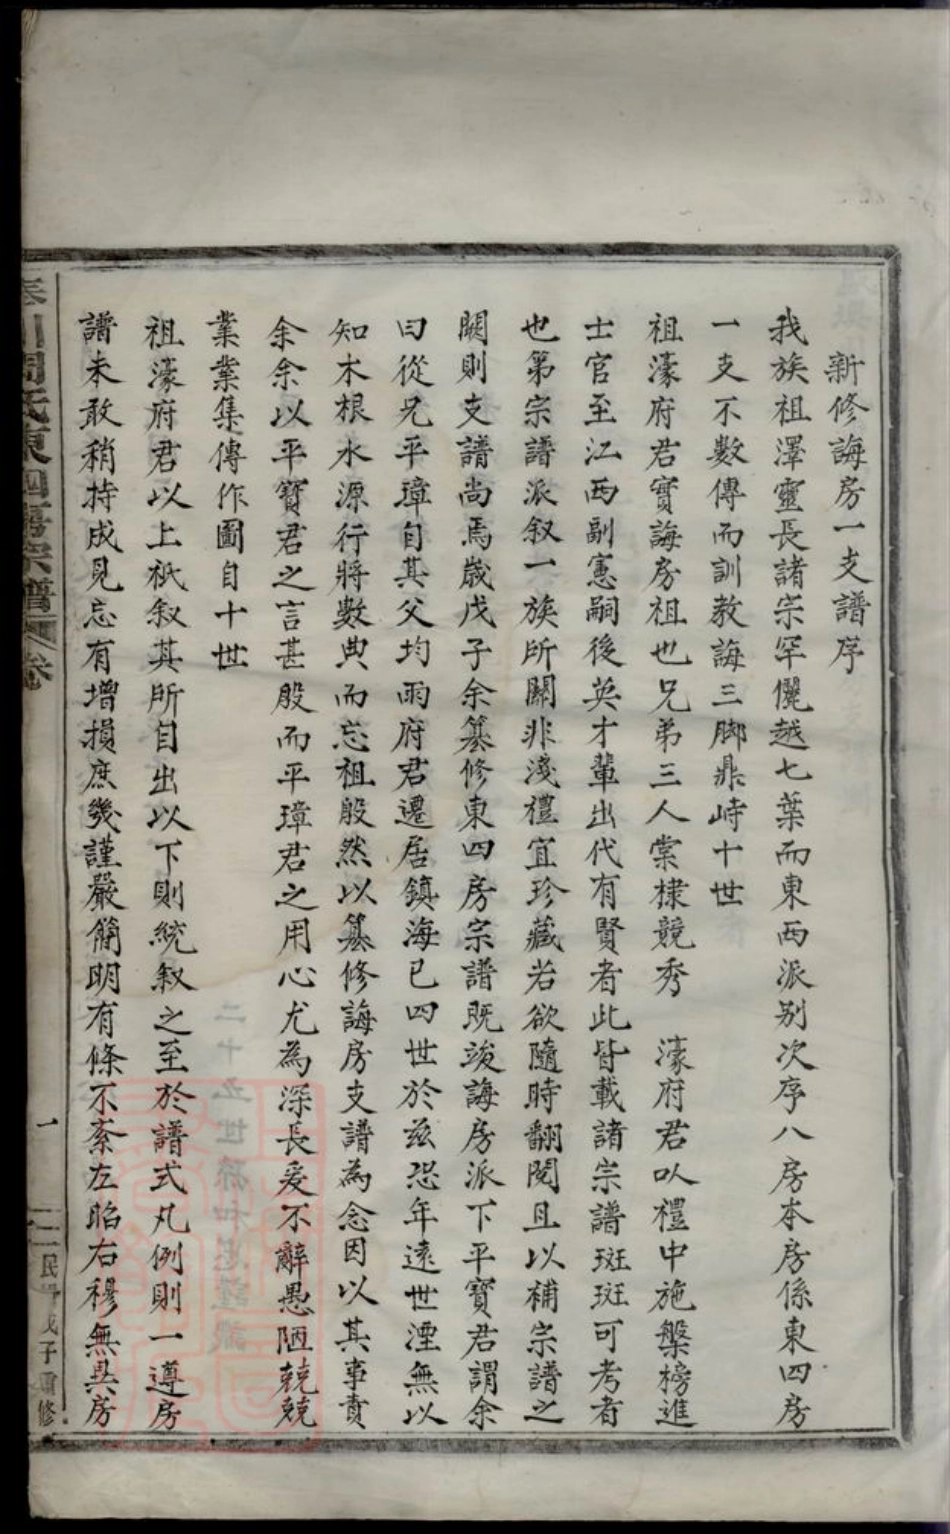 新修誨房一支譜序
我族祖澤靈長諸宗罕儷越七葉而東西派别次序八房本房係東四房
一支不數傳而訓教誨三脚鼎峙十世
祖濠府君實誨房祖也兄弟三人棠棣競秀　濠府君以禮中施槃榜進
士官至江西副憲嗣後英才輩出代有賢者此皆載諸宗譜斑斑可考者
也第宗譜派叙一族所關非淺禮宜珍藏若欲隨時翻閱且以補宗譜之
闕則支譜尚焉歲戊子余纂修東四房宗譜既竣誨房派下平寶君謂余
曰從兄平璋自其父均雨府君遷居鎮海已四世於兹恐年遠世湮無以
知木根水源行將數典而忘祖殷然以纂修誨房支譜為念因以其事責
余余以平寶君之言甚殷而平璋君之用心尤為深長爰不辭愚陋兢兢
業業集傳作圖自十世
祖濠府君以上祇叙其所自出以下則統叙之至於譜式凡例則一遵房
譜未敢稍持成見忘有增損庶幾謹嚴簡明有條不紊左昭右穆無異房
川周氏東四房宗譜 卷 一 民 戊子 修